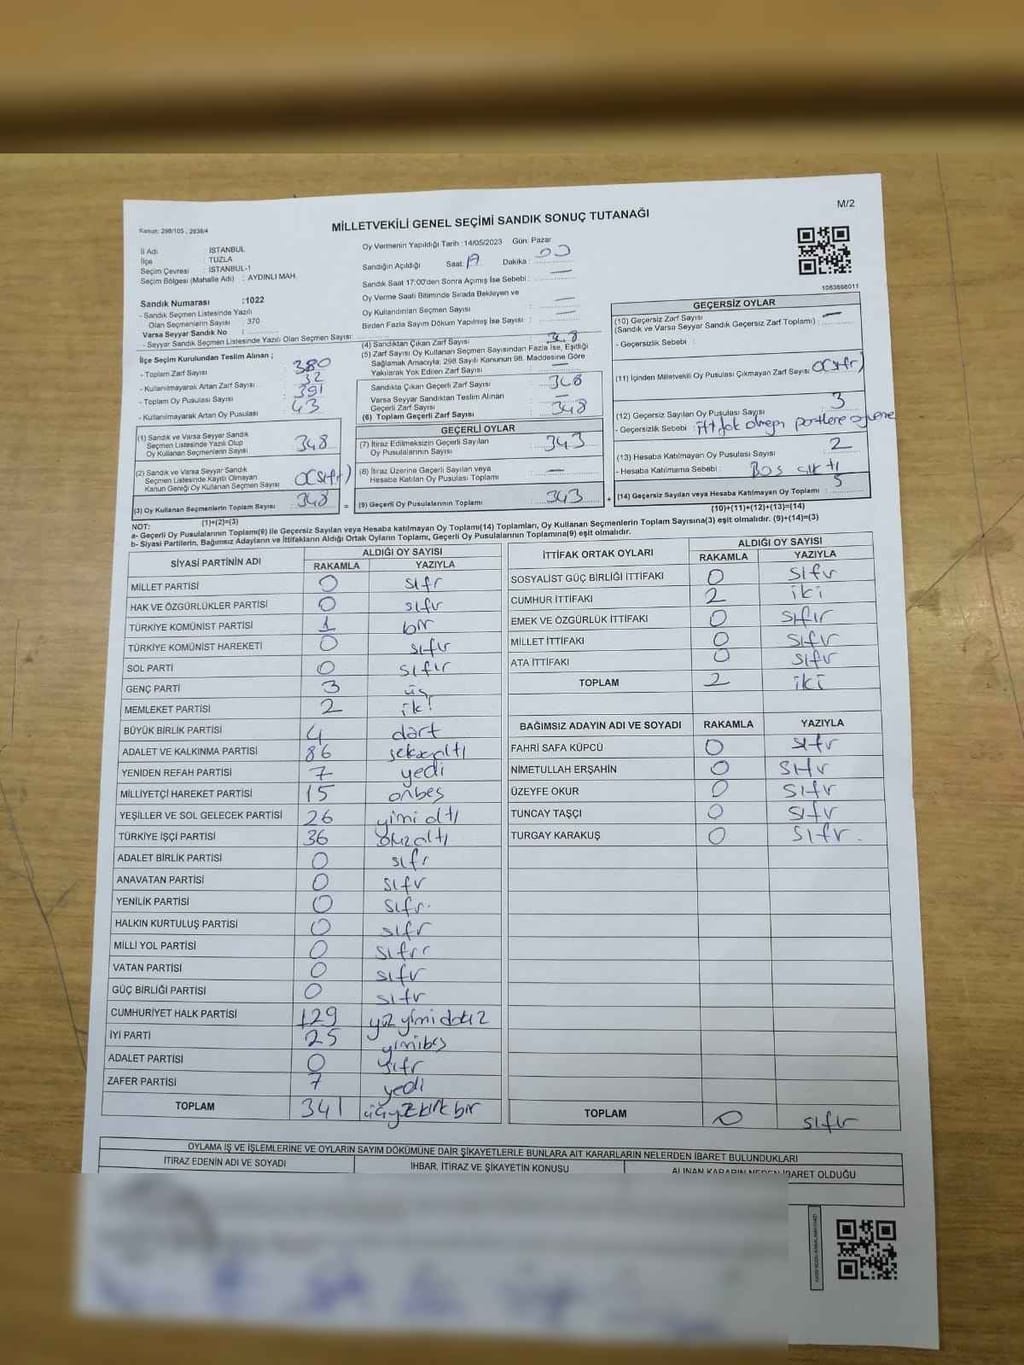 M/2
MİLLETVEKİLİ GENEL SEÇİMİ SANDIK SONUÇ TUTANAĞI
Kanun: 298/105 , 2839/4
İl Adı : İSTANBUL
İlçe : TUZLA
Seçim Çevresi : İSTANBUL-1
Seçim Bölgesi (Mahalle Adı) : AYDINLI MAH.
Oy Vermenin Yapıldığı Tarih :14/05/2023 Gün: Pazar
Sandığın Açıldığı Saat: 17 Dakika : 00
Sandık Saat 17:00'den Sonra Açılmış İse Sebebi : —
Oy Verme Saati Bitiminde Sırada Bekleyen ve
Oy Kullandırılan Seçmen Sayısı : —
Birden Fazla Sayım Döküm Yapılmış İse Sayısı : —
1083886011
Sandık Numarası :1022
- Sandık Seçmen Listesinde Yazılı
Olan Seçmenlerin Sayısı : 370
Varsa Seyyar Sandık No :
- Seyyar Sandık Seçmen Listesinde Yazılı Olan Seçmen Sayısı:
İlçe Seçim Kurulundan Teslim Alınan ;
- Toplam Zarf Sayısı : 380
- Kullanılmayarak Artan Zarf Sayısı : 32
- Toplam Oy Pusulası Sayısı : 391
- Kullanılmayarak Artan Oy Pusulası : 43
(1) Sandık ve Varsa Seyyar Sandık
Seçmen Listesinde Yazılı Olup
Oy Kullanan Seçmen Sayısı 348
(2) Sandık ve Varsa Seyyar Sandık
Seçmen Listesinde Kayıtlı Olmayan
Kanun Gereği Oy Kullanan Seçmen Sayısı 0(sıfır)
(3) Oy Kullanan Seçmenlerin Toplam Sayısı 348
(1)+(2)=(3)
(4) Sandıktan Çıkan Zarf Sayısı : 348
(5) Zarf Sayısı Oy Kullanan Seçmen Sayısından Fazla İse, Eşitliği
Sağlamak Amacıyla, 298 Sayılı Kanunun 98. Maddesine Göre
Yakılarak Yok Edilen Zarf Sayısı : —
Sandıkta Çıkan Geçerli Zarf Sayısı 348
Varsa Seyyar Sandıktan Teslim Alınan
Geçerli Zarf Sayısı —
(6) Toplam Geçerli Zarf Sayısı 348
GEÇERLİ OYLAR
(7) İtiraz Edilmeksizin Geçerli Sayılan
Oy Pusulasının Sayısı 343
(8) İtiraz Üzerine Geçerli Sayılan veya
Hesaba Katılan Oy Pusulası Toplamı —
= (9) Geçerli Oy Pusulalarının Toplamı 343
GEÇERSİZ OYLAR
(10) Geçersiz Zarf Sayısı
(Sandık ve Varsa Seyyar Sandık Geçersiz Zarf Toplamı) : —
- Geçersizlik Sebebi :
(11) İçinden Milletvekili Oy Pusulası Çıkmayan Zarf Sayısı 0(sıfır)
(12) Geçersiz Sayılan Oy Pusulası Sayısı : 3
- Geçersizlik Sebebi : ittifak olmayan partilere
(13) Hesaba Katılmayan Oy Pusulası Sayısı : 2
- Hesaba Katılmama Sebebi : Boş çıktı
+ (14) Geçersiz Sayılan veya Hesaba Katılmayan Oy Toplamı : 5
(10)+(11)+(12)+(13)=(14)
NOT:
a- Geçerli Oy Pusulalarının Toplamı(9) ile Geçersiz Sayılan veya Hesaba katılmayan Oy Toplamı(14) Toplamları, Oy Kullanan Seçmenlerin Toplam Sayısına(3) eşit olmalıdır. (9)+(14)=(3)
b- Siyasi Partilerin, Bağımsız Adayların ve İttifakların Aldığı Ortak Oyların Toplamı, Geçerli Oy Pusulalarının Toplamına(9) eşit olmalıdır.
SİYASİ PARTİNİN ADI ALDIĞI OY SAYISI
RAKAMLA YAZIYLA
MİLLET PARTİSİ 0 sıfr
HAK VE ÖZGÜRLÜKLER PARTİSİ 0 sıfır
TÜRKİYE KOMÜNİST PARTİSİ 1 bir
TÜRKİYE KOMÜNİST HAREKETİ 0 sıfır
SOL PARTİ 0 sıfır
GENÇ PARTİ 3 üç
MEMLEKET PARTİSİ 2 iki
BÜYÜK BİRLİK PARTİSİ 4 dört
ADALET VE KALKINMA PARTİSİ 86 seksenaltı
YENİDEN REFAH PARTİSİ 7 yedi
MİLLİYETÇİ HAREKET PARTİSİ 15 onbeş
YEŞİLLER VE SOL GELECEK PARTİSİ 26 yirmi altı
TÜRKİYE İŞÇİ PARTİSİ 36 otuzaltı
ADALET BİRLİK PARTİSİ 0 sıfr
ANAVATAN PARTİSİ 0 sıfır
YENİLİK PARTİSİ 0 sıfır.
HALKIN KURTULUŞ PARTİSİ 0 sıfır
MİLLİ YOL PARTİSİ 0 sıfır
VATAN PARTİSİ 0 sıfır
GÜÇ BİRLİĞİ PARTİSİ 0 sıfır
CUMHURİYET HALK PARTİSİ 129 yüz yirmi dokuz
İYİ PARTİ 25 yirmibeş
ADALET PARTİSİ 0 sıfr
ZAFER PARTİSİ 7 yedi
TOPLAM 341 üçyüz kırk bir
İTTİFAK ORTAK OYLARI ALDIĞI OY SAYISI
RAKAMLA YAZIYLA
SOSYALİST GÜÇ BİRLİĞİ İTTİFAKI 0 sıfır
CUMHUR İTTİFAKI 2 iki
EMEK VE ÖZGÜRLÜK İTTİFAKI 0 sıfır
MİLLET İTTİFAKI 0 sıfır
ATA İTTİFAKI 0 sıfır
TOPLAM 2 iki
BAĞIMSIZ ADAYIN ADI VE SOYADI RAKAMLA YAZIYLA
FAHRİ SAFA KÜPCÜ 0 sıfır
NİMETULLAH ERŞAHİN 0 sıfır
ÜZEYFE OKUR 0 sıfır
TUNCAY TAŞÇI 0 sıfır
TURGAY KARAKUŞ 0 sıfır.
TOPLAM 0 sıfır
OYLAMA İŞ VE İŞLEMLERİNE VE OYLARIN SAYIM DÖKÜMÜNE DAİR ŞİKAYETLERLE BUNLARA AİT KARARLARIN NELERDEN İBARET BULUNDUKLARI
İTİRAZ EDENİN ADI VE SOYADI İHBAR, İTİRAZ VE ŞİKAYETİN KONUSU ALINAN KARARIN NEDEN İBARET OLDUĞU